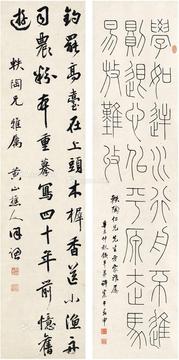 學如逆水行舟不進
則退心似平原走馬
易放難收
軼陶仁兄先生方家雅屬
釣罷高臺在上頭木樨香送小漁舟
司農粉本重摹寫四十年前憶舊
遊 軼陶兄雅屬 黃山樵人